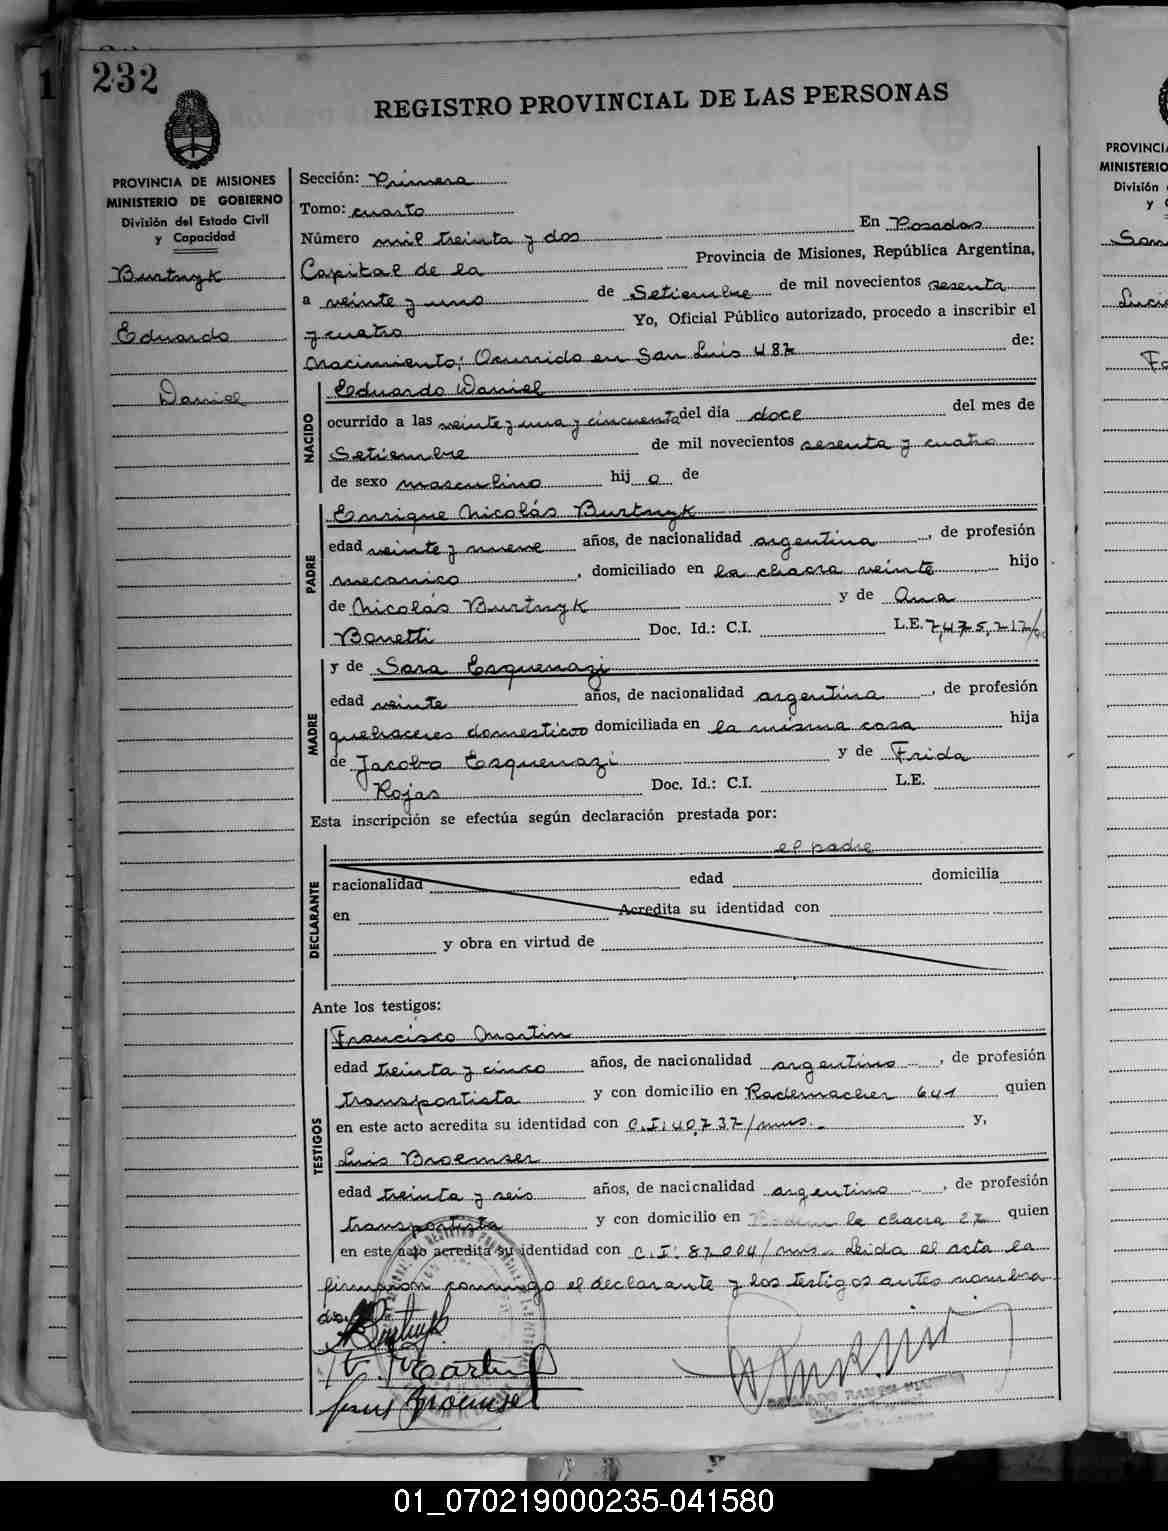 232
REGISTRO PROVINCIAL DE LAS PERSONAS
PROVINCIA DE MISIONES
MINISTERIO DE GOBIERNO
División del Estado Civil
y Capacidad
Burtnyk
Eduardo
Daniel
Sección: Primera
Tomo: cuarto
Número mil treinta y dos En Posadas
Capital de la Provincia de Misiones, República Argentina,
a veinte y uno de Setiembre de mil novecientos sesenta
y cuatro Yo, Oficial Público autorizado, procedo a inscribir el
Nacimiento; Ocurrido en San Luis 487 de:
NACIDO
Eduardo Daniel
ocurrido a las veinte y una y cincuenta del día doce del mes de
Setiembre de mil novecientos sesenta y cuatro
de sexo masculino hij o de
PADRE
Enrique Nicolás Burtnyk
edad veinte y nueve años, de nacionalidad argentina, de profesión
mecanico, domiciliado en la chacra veinte hijo
de Nicolás Burtnyk y de Ana
Bonetti Doc. Id.: C.I. L.E. 7,475,217/
MADRE
y de Sara Esquenazi
edad veinte años, de nacionalidad argentina, de profesión
quehaceres domesticos domiciliada en la misma casa hija
de Jacobo Esquenazi y de Frida
Rojas Doc. Id.: C.I. L.E.
Esta inscripción se efectúa según declaración prestada por:
el padre
DECLARANTE
nacionalidad edad domicilia
en Acredita su identidad con
y obra en virtud de
Ante los testigos:
TESTIGOS
Francisco Martin
edad treinta y cinco años, de nacionalidad argentino, de profesión
transportista y con domicilio en Rademacher 641 quien
en este acto acredita su identidad con C.I: 40,737/mns.- y,
Luis Broemser
edad treinta y seis años, de nacionalidad argentino, de profesión
transportista y con domicilio en la chacra 27 quien
en este acto acredita su identidad con C.I: 87004/mns.- Leida el acta la
firmaron conmigo el declarante y los testigos antes nombra
dos.
PROVINCIA
MINISTERIO
División
y
01_070219000235-041580